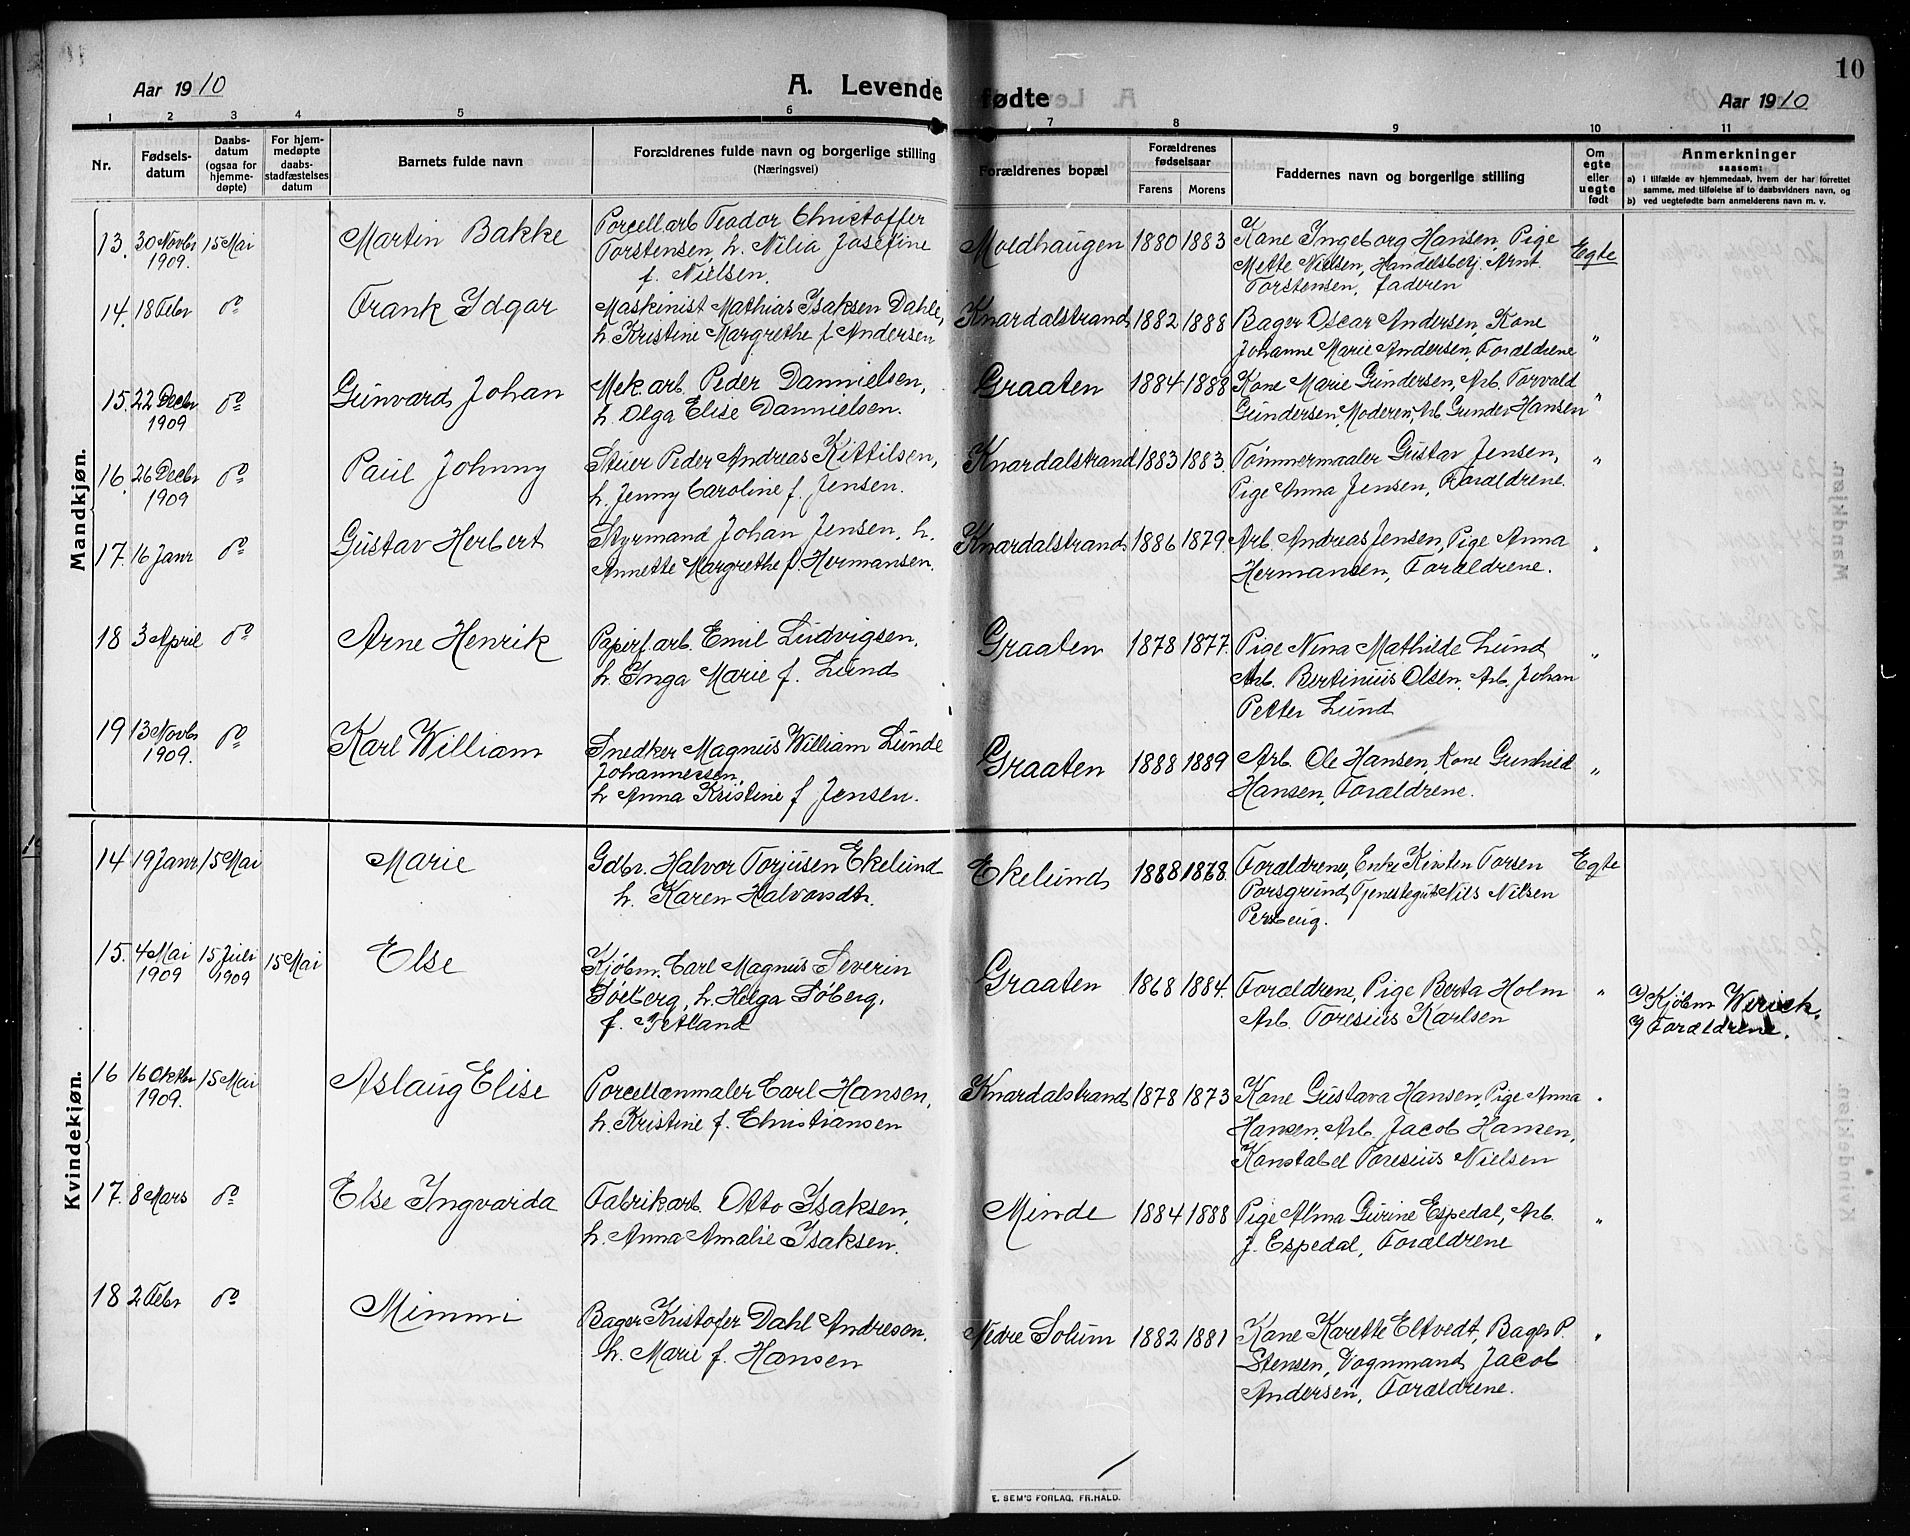 10
Aar 1910
A. Levende fødte
Aar 1910
1 2 3 4 5 6 7 8 9 10 11
Nr.
Fødsels-
datum
Daabs-
datum
(ogsaa for
hjemme-
døpte)
For hjem-
medøpte
daabs-
stadfæstelses
datum
Barnets fulde navn
Forældrenes fulde navn og borgerlige stilling
(Næringsvei)
Forældrenes bopæl
Forældrenes
fødselsaar
Farens Morens
Faddernes navn og borgerlige stilling
Om
egte
eller
uegte
født
Anmerkninger
saasom:
a) i tilfælde av hjemmedaab, hvem der har forrettet
samme, med tilføielse af to daabsvidners navn, og
b) ved uegtefødte barn anmelderens navn m. v.
Mandkjøn.
13. 30 Novbr 1909. 15 Mai Martin Bakke
Porcell.arb. Teodor Christoffer
Torstensen, h. Nilia Josefine
f. Nielsen.
Moldhaugen 1880 1883
Kone Ingeborg Hansen, Pige
Mette Nielsen, Handelsbetj. Arnt
Torstensen, faderen
Egte
14. 18 Febr do Frank Idgar
Maskinist Mathias Isaksen Dahle,
h. Kristine Margrethe f. Andersen
Knardalstrand 1882 1888
Bager Oscar Andersen, Kone
Johanne Marie Andersen, Forældrene "
15. 22 Decbr 1909 do Gunvard Johan
Mek.arb. Peder Dannielsen,
h. Olga Elise Dannielsen.
Graaten 1884 1888
Kone Marie Gundersen, Arb. Torvald
Gundersen, Moderen, Arb. Gunder Hansen "
16. 26 Decbr 1909 do Paul Johnny
Stuer Peder Andreas Kittilsen,
h. Jenny Caroline f. Jensen.
Knardalstrand 1883 1883.
Tømmermaaler Gustav Jensen,
Pige Anna Jensen, Forældrene. "
17. 16 Janr do Gustav Herbert
Styrmand Johan Jensen, h.
Annette Margrethe f. Hermansen.
Knardalstrand 1886 1879.
Arb. Andreas Jensen, Pige Anna
Hermansen, Forældrene. "
18 3 April do Arne Henrik
Papirf.arb. Emil Ludvigsen,
h. Inga Marie f. Lund
Graaten 1878 1877.
Pige Nina Mathilde Lund
Arb. Bertinius Olsen, Arb. Johan
Petter Lund "
19 13 Novbr 1909. do Karl William
Snedker Magnus William Lunde
Johannessen,
h. Anna Kristine f. Jensen.
Graaten 1888 1889
Arb. Ole Hansen, Kone Gunhild
Hansen, Forældrene. "
Kvindekjøn.
14 19 Janr. 15 Mai Marie
Gdbr. Halvor Torjusen Ekelund
h. Karen Halvorsdtr.
Ekelund 1868 1878.
Forældrene, Enke Kirsten Torsen
Porsgrund, Tjenestegut Nils Nilsen
Egte
15. 4 Mai 1909 15 Juli 1909 15 Mai Else
Kjøbm. Carl Magnus Severin
Søeberg, h. Helga Søberg,
f. Jetland
Graaten 1868 1884.
Forældrene, Pige Berta Holm
Arb. Toresius Karlsen "
a) Kjøbm Werick.
Forældrene.
16 16 Oktbr 1909. 15 Mai Aslaug Elise
Porcellænmaler Carl Hansen,
h. Kristine f. Christiansen
Knardalstrand 1878 1873
Kone Gustava Hansen, Pige Anna
Hansen, Arb. Jacob Hansen,
Konstabel Toresius Nielsen "
17. 8 Mars do Else Ingvarda
Fabrikarb. Otto Isaksen,
h. Anna Amalie Isaksen.
Minde 1884 1888
Pige Alma Gurine Espedal, Arb.
J. Espedal, Forældrene "
18 2 Febr do Mimmi
Bager Kristofer Dahl Andresen,
h. Marie f. Hansen
Nedre Solum 1882 1881
Kone Karette Eltvedt, Bager P.
Stensen, Vognmand Jacob
Andersen, Forældrene. "
E. SEM'S FORLAG, FR.HALD.